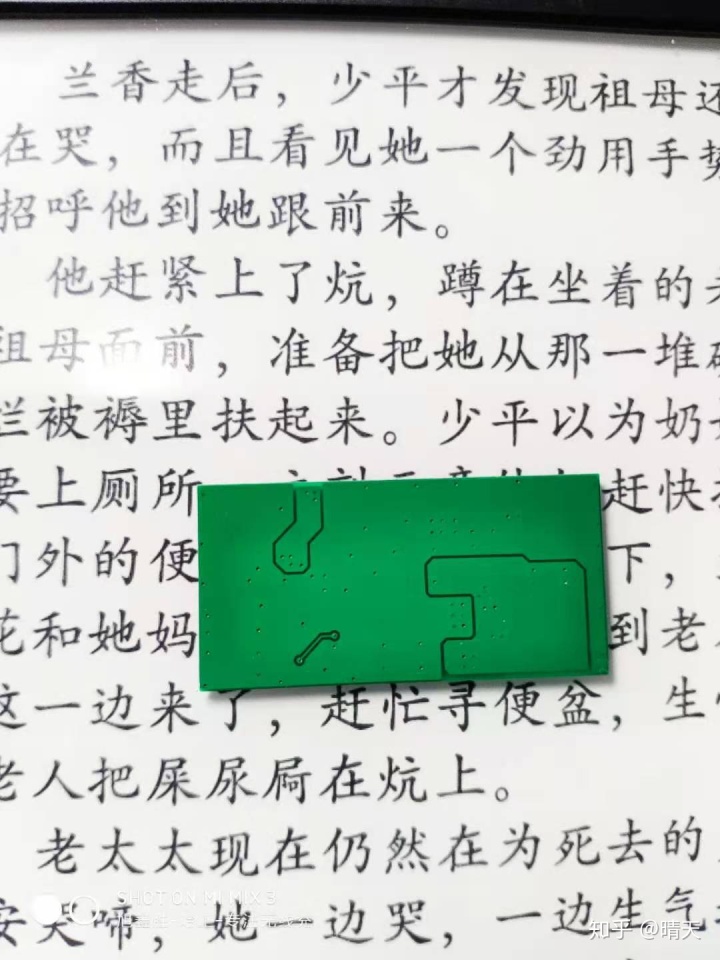 兰香走后，少平才发现祖母还
在哭，而且看见她一个劲用手势
招呼他到她跟前来。
他赶紧上了炕，蹲在坐着的
祖母面前，准备把她从那一堆破
烂被褥里扶起来。少平以为奶奶
要上厕所 赶快
门外的便 下，
花和她妈 到老
这一边来了，赶忙寻便盆，生怕
老人把屎尿屙在炕上。
老太太现在仍然在为死去的
安天啼，她一边哭，一边生气
SHOT ON MI MIX3
知乎 @晴天